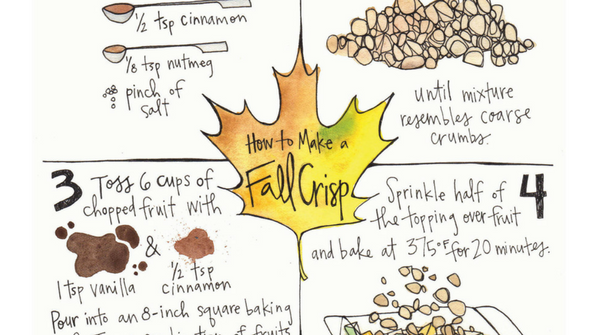 1/2 tsp cinnamon
1/8 tsp nutmeg
pinch of
salt
until mixture
resembles coarse
crumbs.
How to Make a
Fall Crisp
3 Toss 6 cups of
chopped fruit with
&
1 tsp vanilla
1/2 tsp
cinnamon
Pour into an 8-inch square baking
4
Sprinkle half of
the topping over fruit
and bake at 375°F for 20 minutes.